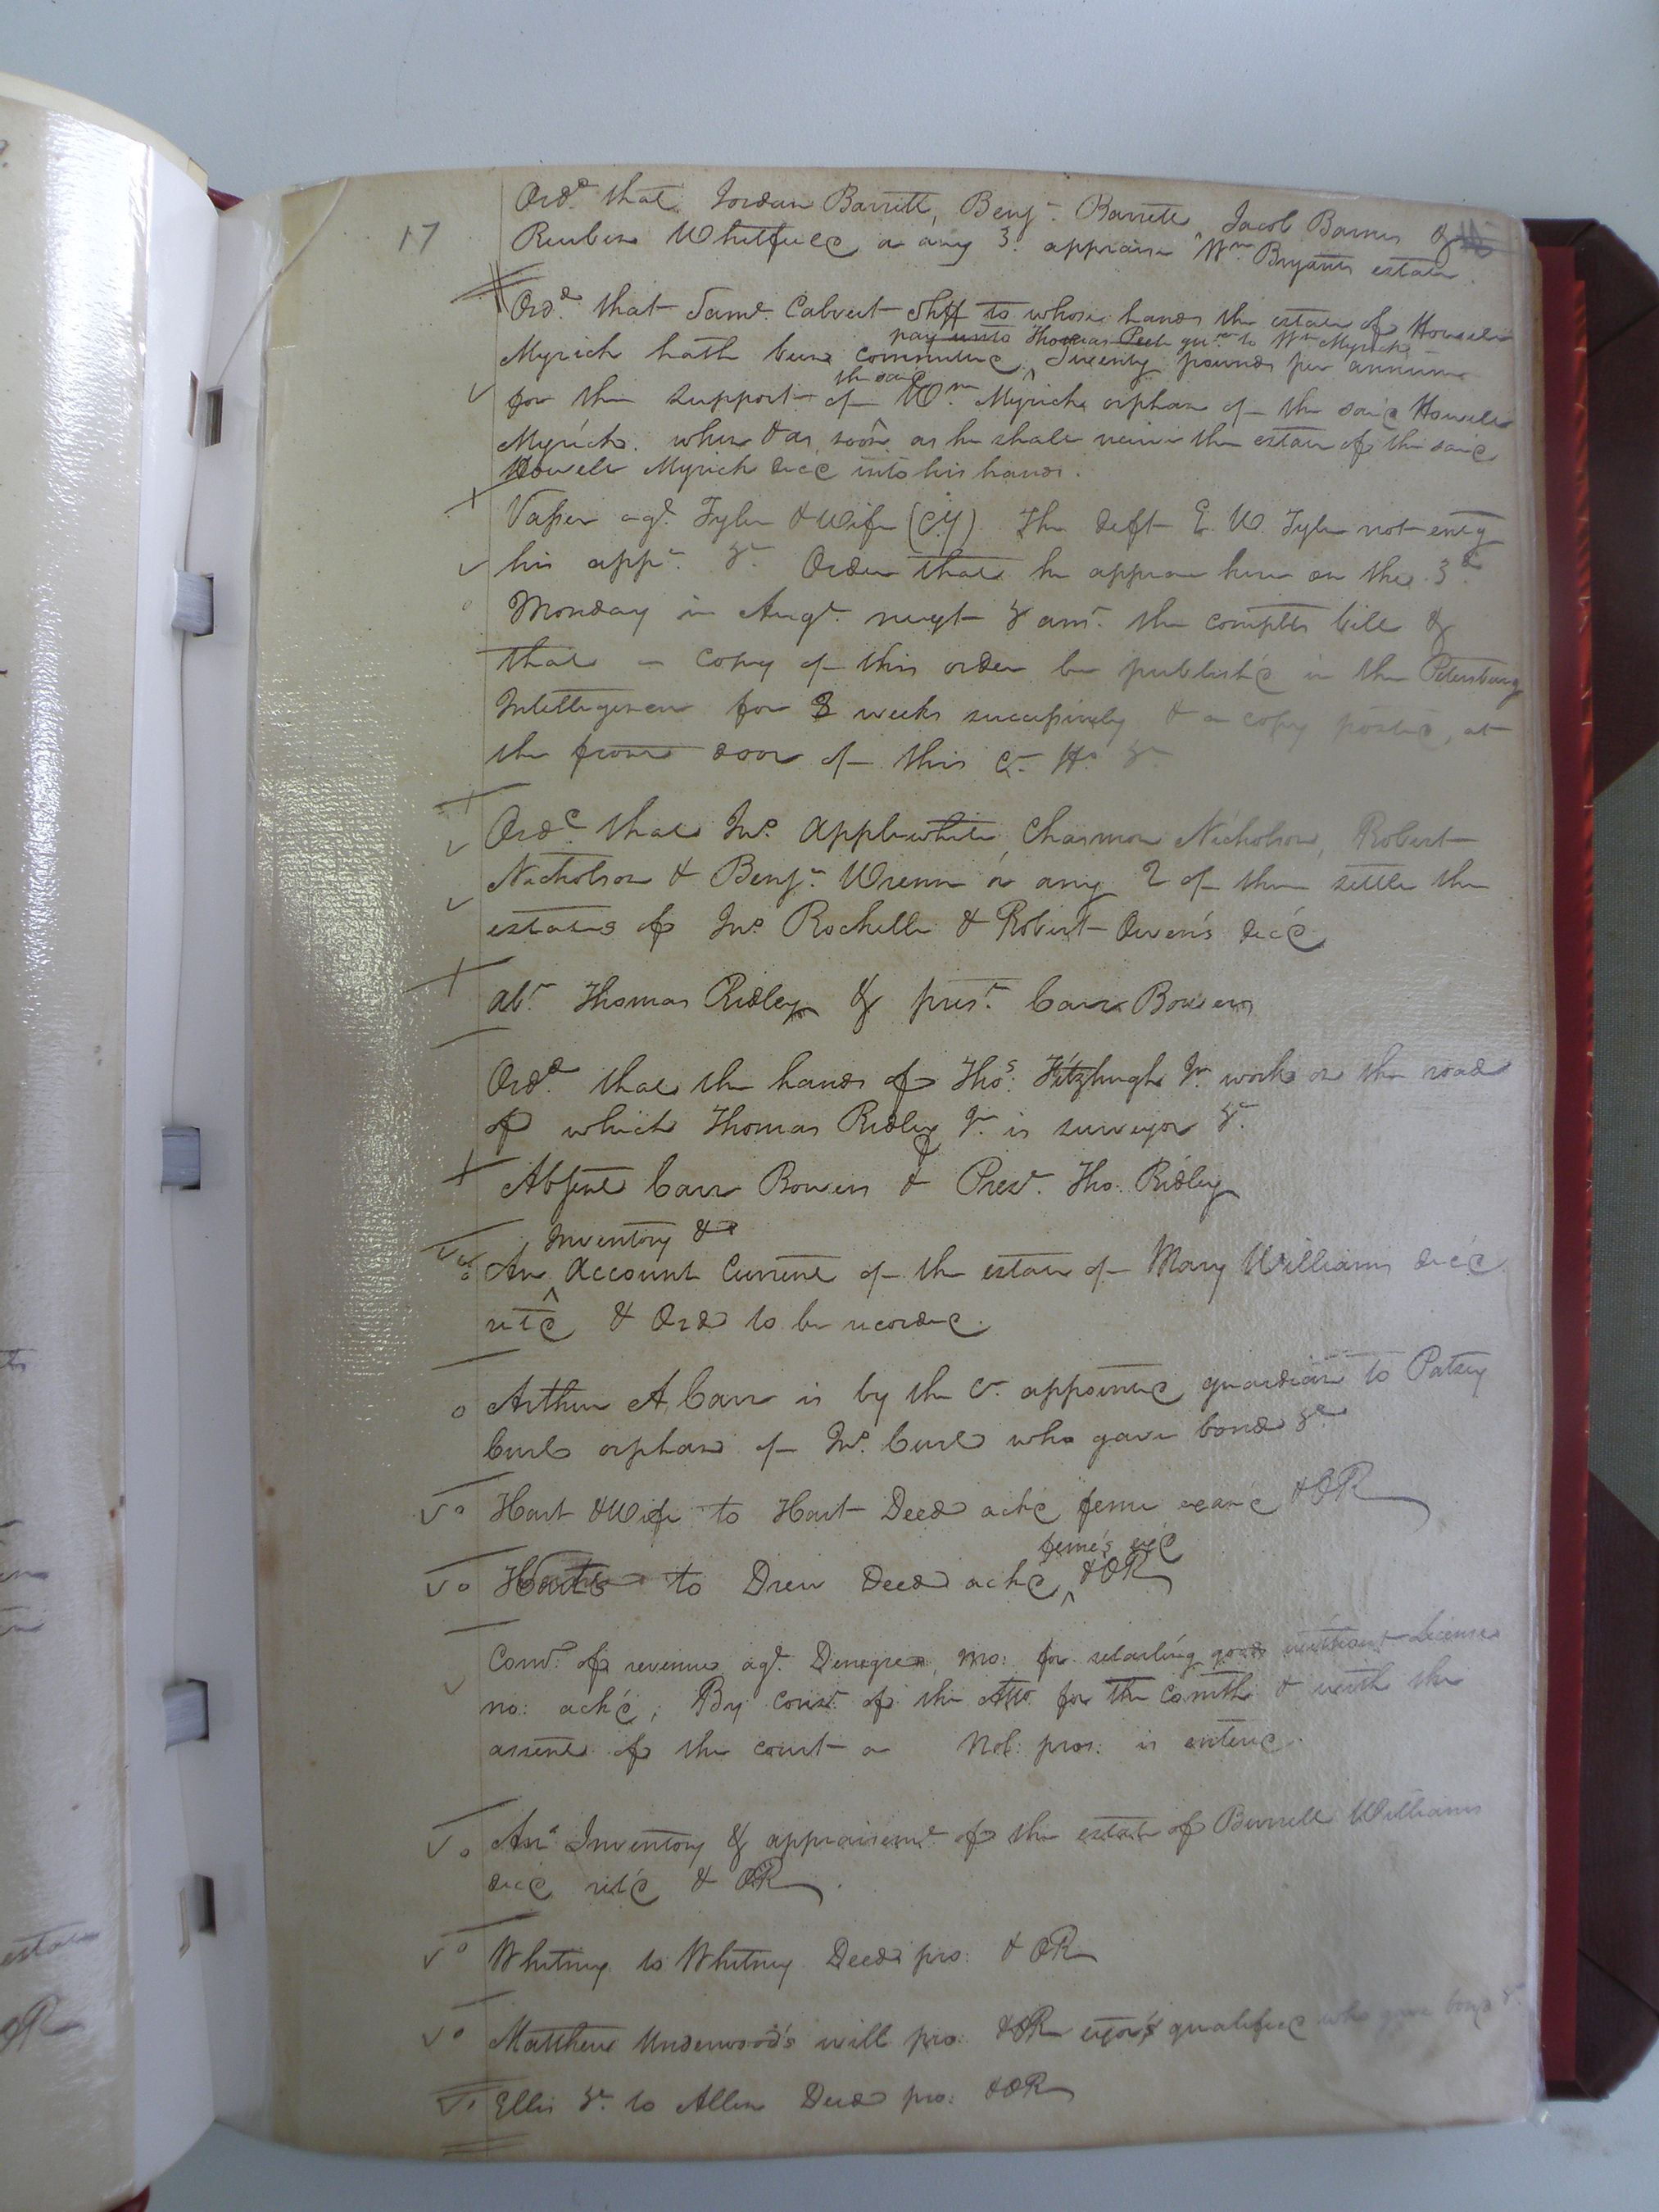 17
Ord.d that Jordan Barrett, Benj.n Barrett, Jacob Barnes &
Reuben Whitfield or any 3. appraise Wm. Bryants estate.
Ord.d that Saml. Calvert Shff to whose hands the estate of Howell
pay unto Thomas Peete gu.n to Wm Myrick
Myrick hath been committed ^ Twenty pounds per annum
the said
for the support of Wm. Myrick orphan of the said Howell
Myrick. when & as soon as he shall receive the estate of the said
Howell Myrick decd into his hands.
Vasser agt. Tyler & Wife (Cy) The deft E. W. Tyler not enterg
his appe. &c Order that he appear here on the 3d.
Monday in Augt. next & ansr. the complts bill &
that a copy of this order be publish'd in the Petersburg
Intelligencer for 8 weeks successively & a copy posted, at
the front door of this Ct. Ho &c
Ord.d that Jno. Applewhite, Charmon Nicholson, Robert
Nicholson & Benj.n Wrenn or any 2 of them settle the
estates of Jno. Rochelle & Robert Owen's dec'd
abt. Thomas Ridley & prest. Carr Bowers
Ord.d that the hands of Thos: Fitzhugh Jr. work on the road
of which Thomas Ridley Jr. is surveyor &c.
Absent Carr Bowers & Prest. Tho. Ridley
Inventory &
An ^ Account Current of the estate of Mary Williams dec'd
ret'd & Ord to be recorded.
Arthur A Carr is by the Ct. appointed guardian to Patsey
Curl orphan of Jno. Curl who gave bond &c
Hart & Wife to Hart Deed ack'd feme exam'd & OR
feme's ex'd
Harts to Drew Deed ack'd ^ & OR
Comr. of revenue agt. Denegre, mo: for retailing goods without License
no: ack'd; By const. of the Atto. for the Comth & with the
assent of the court a Nol: pros: is entered.
An Inventory & appraisemt. of the estate of Burrell Williams
decd ret'd & OR.
Whitney to Whitney Deed pro: & OR
Matthew Underwood's will pro: & OR exor's qualified who gave bond &c.
Ellis &c. to Allen Deed pro: & OR